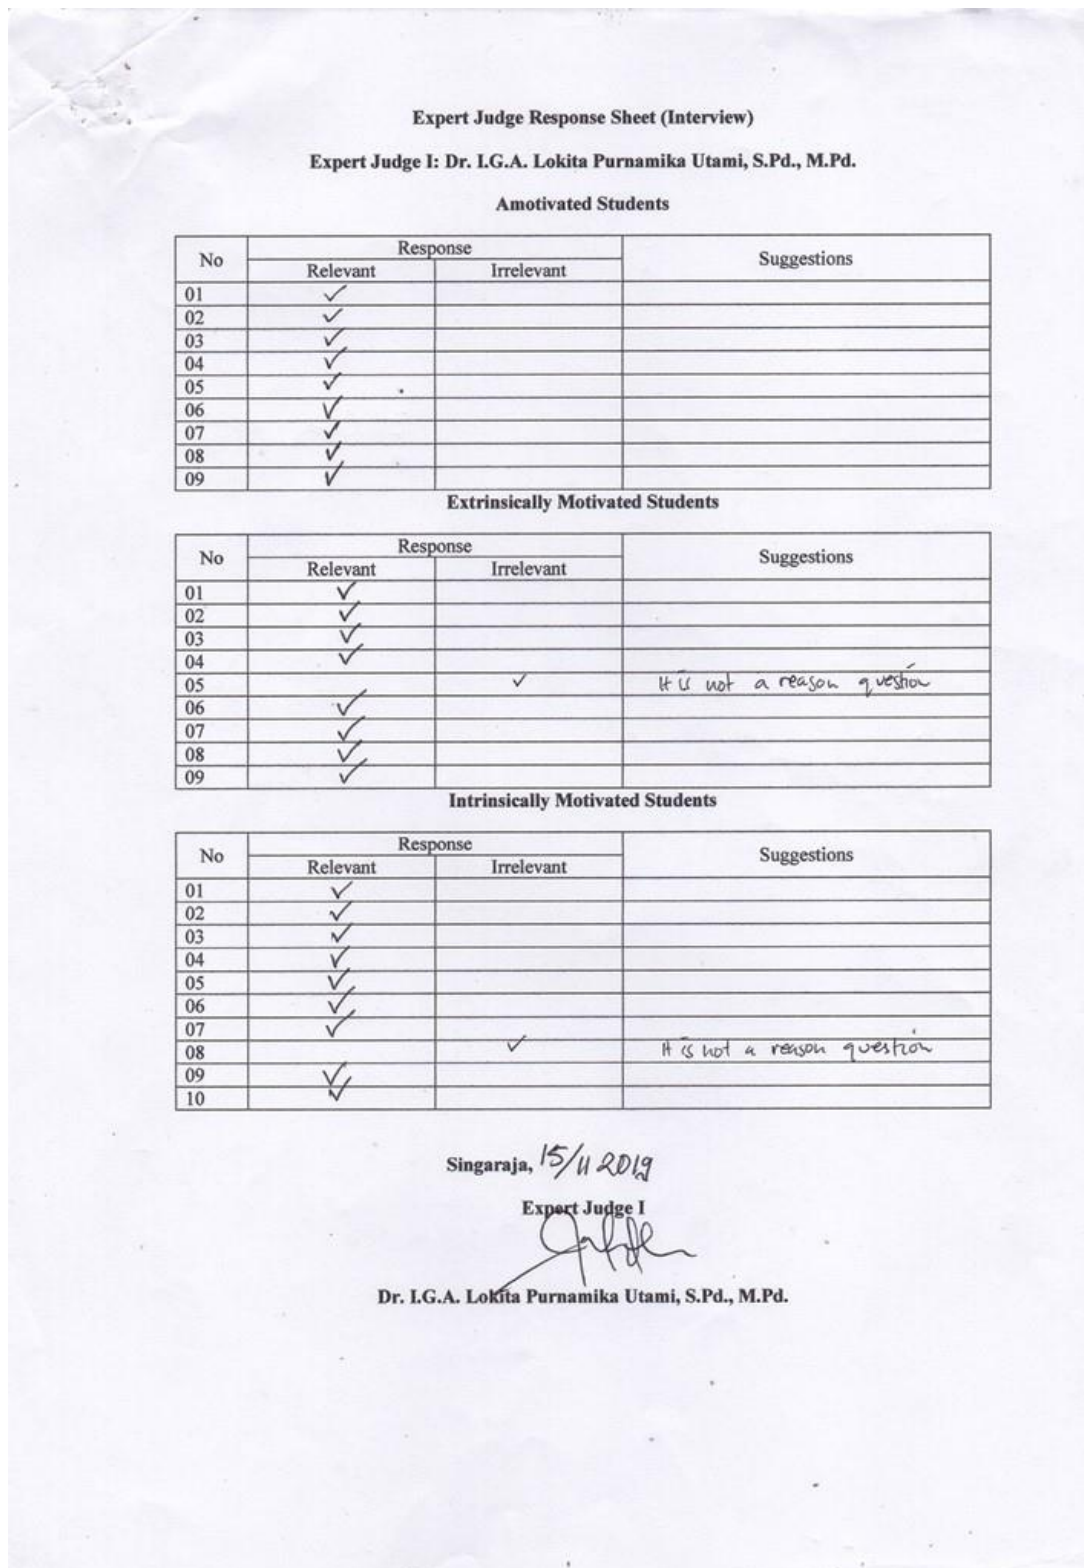 Expert Judge Response Sheet (Interview)
Expert Judge I: Dr. I.G.A. Lokita Purnamika Utami, S.Pd., M.Pd.
Amotivated Students
No Response Suggestions
Relevant Irrelevant
01 ✓
02 ✓
03 ✓
04 ✓
05 ✓
06 ✓
07 ✓
08 ✓
09 ✓
Extrinsically Motivated Students
No Response Suggestions
Relevant Irrelevant
01 ✓
02 ✓
03 ✓
04 ✓
05 ✓ It is not a reason question
06 ✓
07 ✓
08 ✓
09 ✓
Intrinsically Motivated Students
No Response Suggestions
Relevant Irrelevant
01 ✓
02 ✓
03 ✓
04 ✓
05 ✓
06 ✓
07 ✓
08 ✓ It is not a reason question
09 ✓
10 ✓
Singaraja, 15/11 2019
Expert Judge I
Dr. I.G.A. Lokita Purnamika Utami, S.Pd., M.Pd.